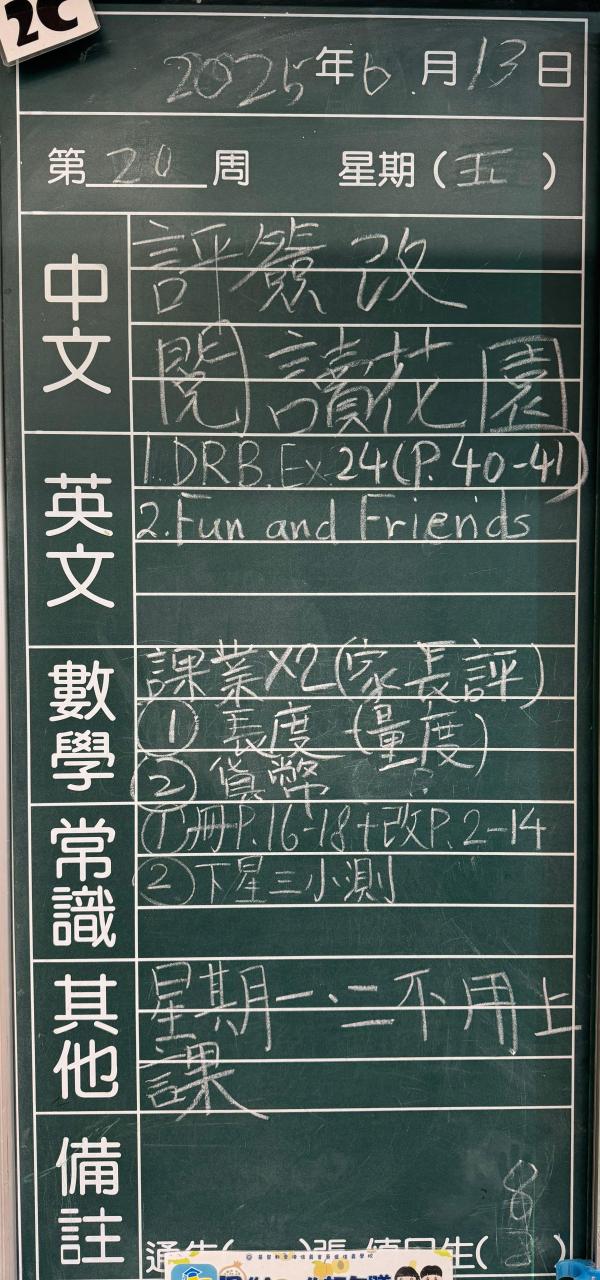 2C
2025年6月13日
第20周 星期(五)
中文
評簽改
閱讀花園
英文
1.DRB.Ex24(P.40-41)
2.Fun and Friends
數學
課業X2(家長評)
① 長度(量度)
② 貨幣
常識
①冊P.16-18+改P.2-14
②下星三小測
其他
星期一、二不用上
課
備註
8
通告( )張 值日生(